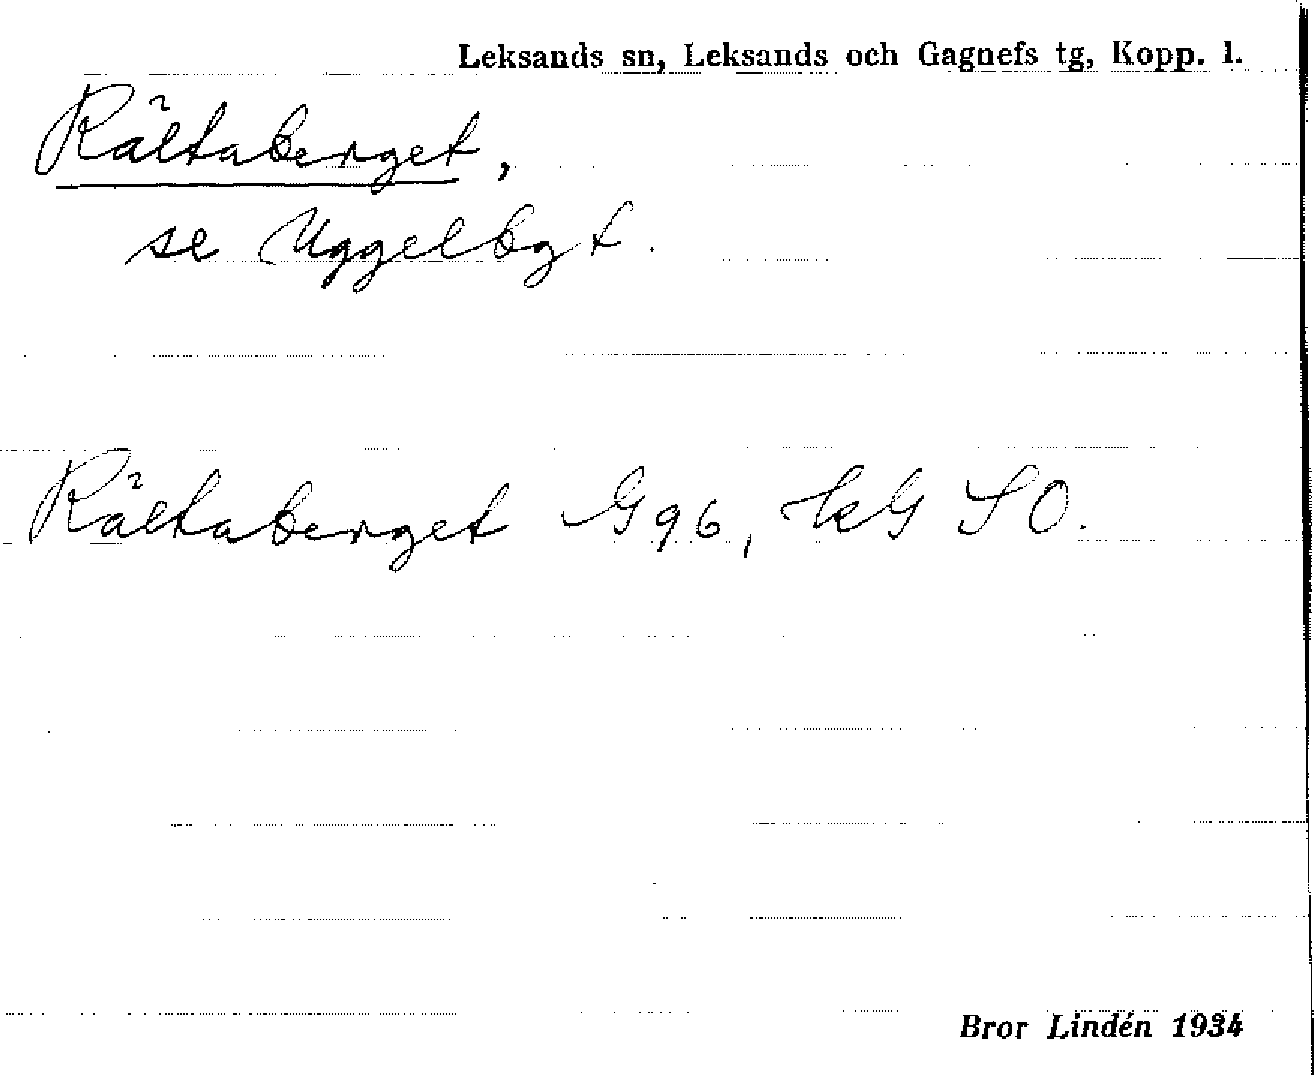 Leksands sn, Leksands och Gagnefs tg, Kopp. l.
Rältaberget,
se Uggelbgt.
Rältaberget G96, HkG SO.
Bror Lindén 1934